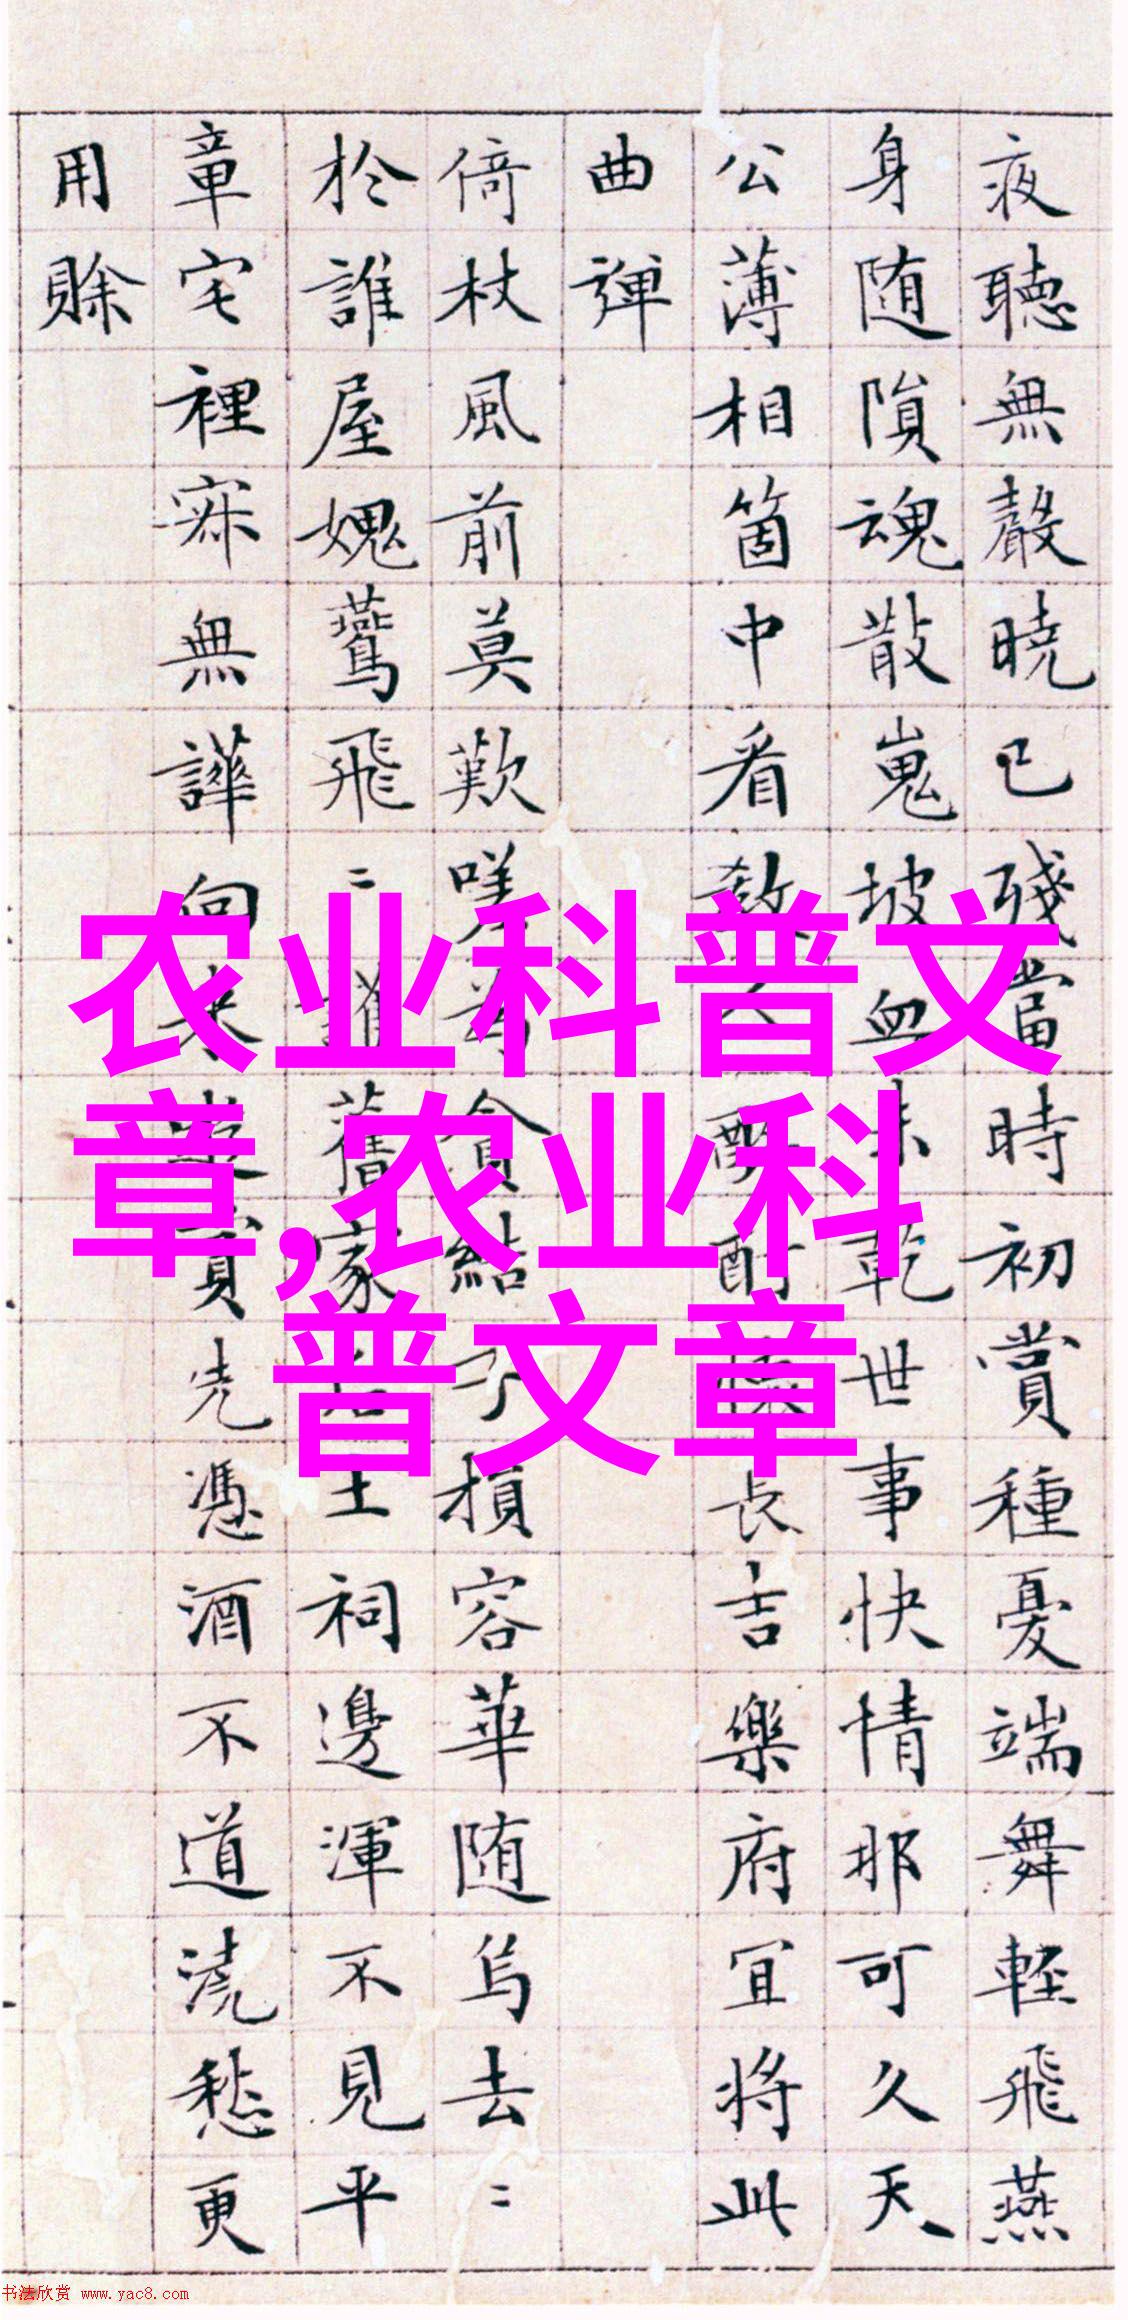 夜聽無聲曉已殘當時初賞種憂端舞輕飛燕
身随隕魂散嵬坡血未乾世事快情那可久天
公薄相箇中看長吉樂府宜將此
曲彈
倚杖風前莫歎嗟為貪結子損容華随烏去〻
於誰屋媿鷰飛〻舊家主祠邊渾不見平
章宅裡寐無譁向来賞先憑酒不道澆愁更
用賒
农业科普文
章,农业科
普文章
书法欣赏 www.yac8.com